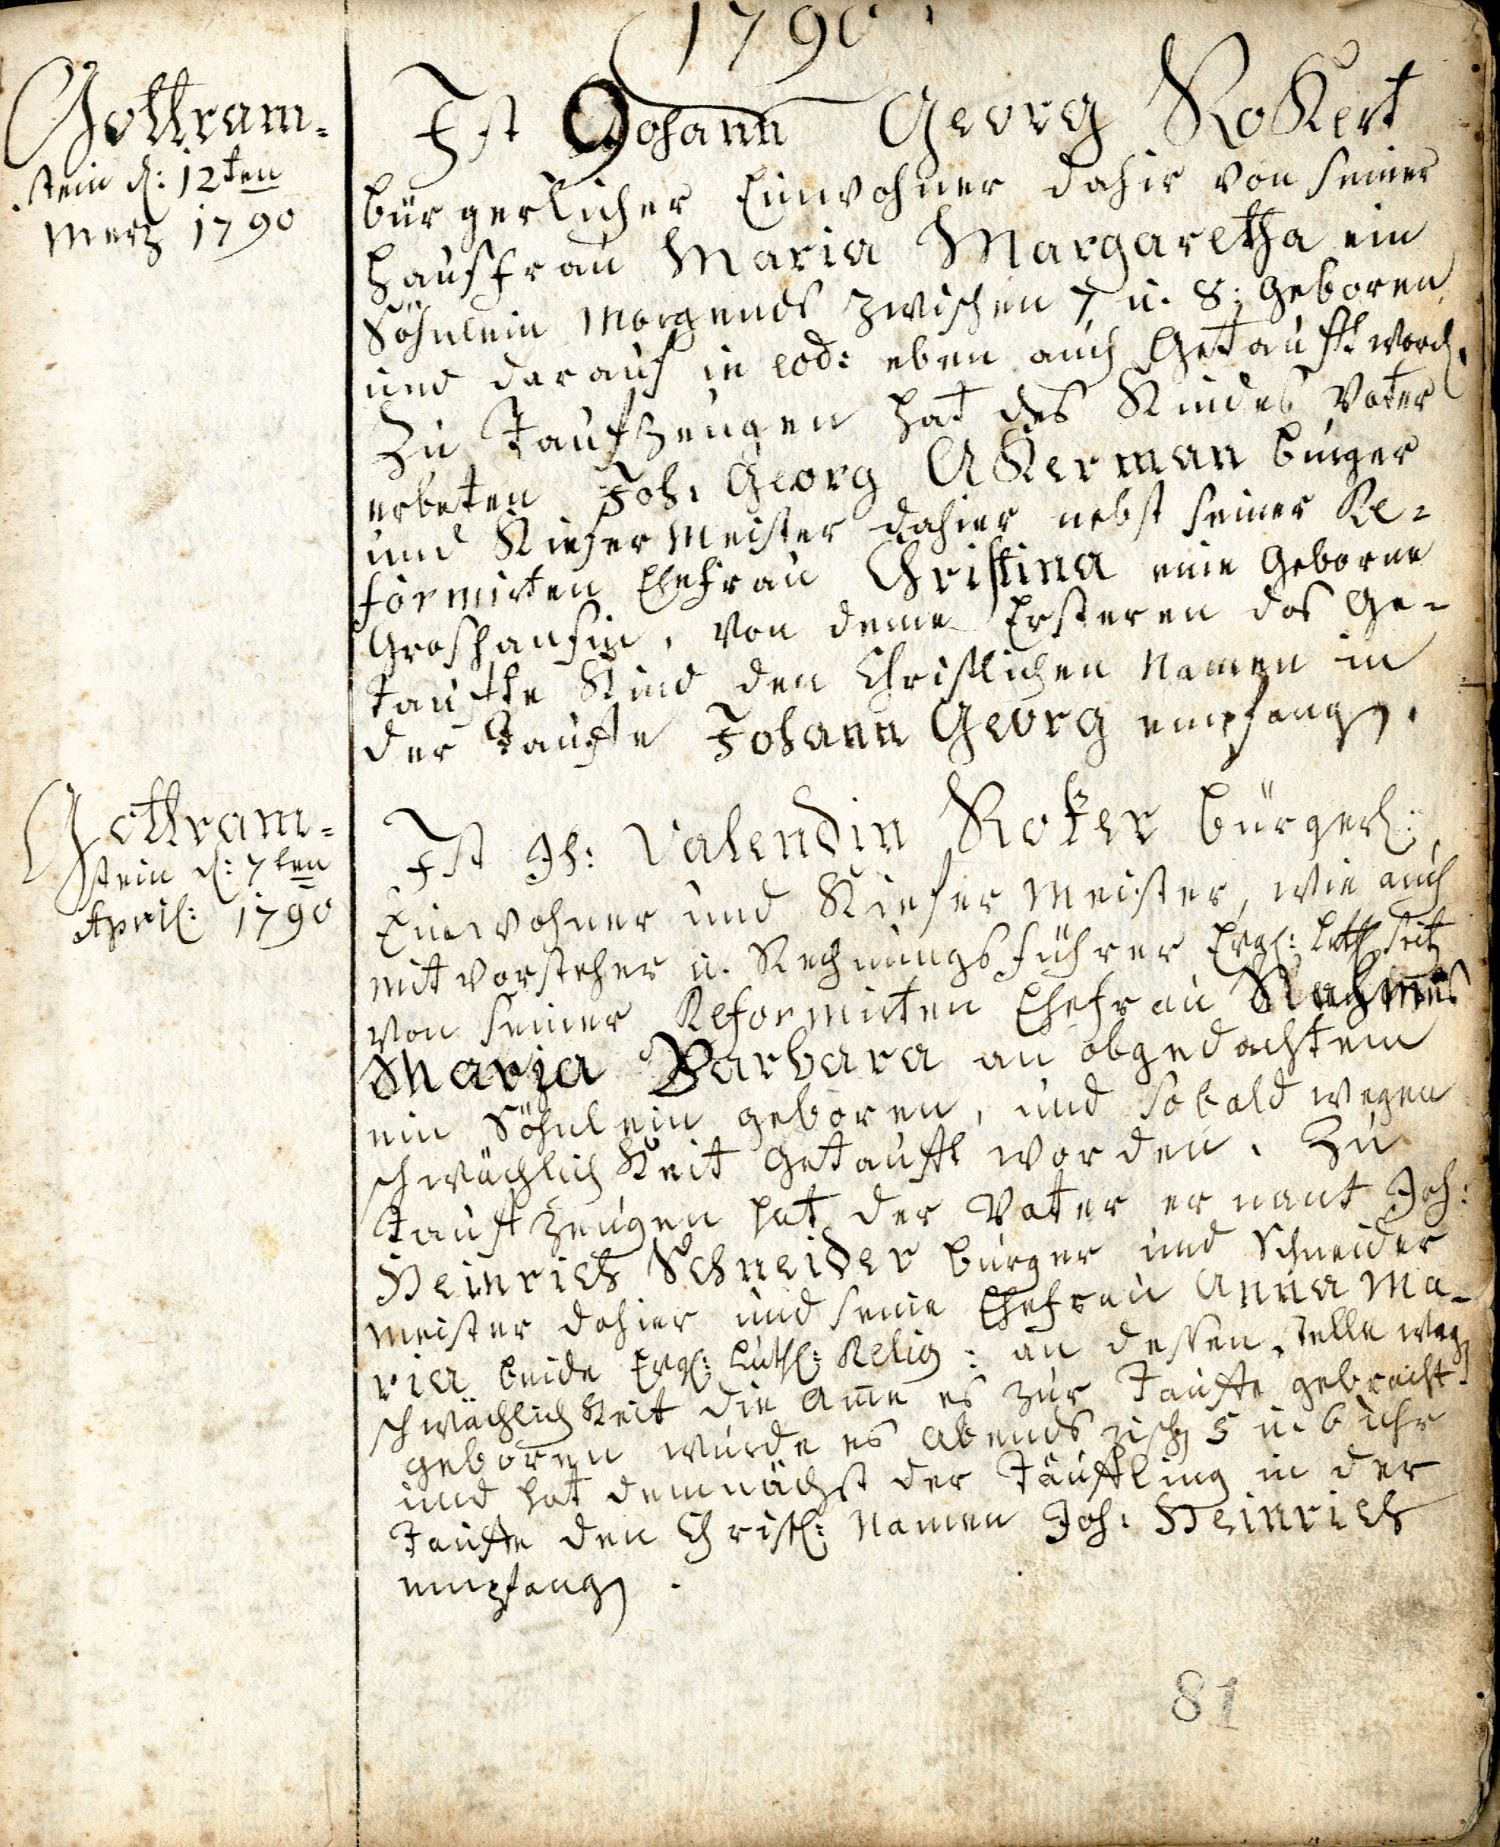 1790
Gottram=
stein d: 12ten
Merz 1790
Ist Johann Georg RoKert
bürgerlicher Einwohner dahir von seiner
hausfrau Maria Margaretha ein
Söhnlein Morgends zwischen 7 u. 8: Geboren
und darauf in eod: eben auch Getauft word.
Zu Taufzeugen hat des Kindes Vater
erbeten Joh: Georg AKerman burger
und Kiefer Meister dahier nebst seiner Re=
formirten Ehefrau Christina eine Geborne
Groshansin, von deme Ersteren das Ge=
taufte Kind den Christlichen Namen in
der Taufte Johann Georg empfang.
Gottram=
stein d: 7ten
April: 1790
Ist Jh: Valendin Roker bürgerl:
Einwohner und Kiefer Meister, wie auch
mit vorsteher u. Rechnungsführer Evgl: Luth seits
von seiner Reformirten Ehefrau
Maria Barbara an obgedachtem
ein Söhnlein geboren, und sobald wegen
schwächlichKeit Getauft worden. Zu
Tauftzeugen hat der Vater ernant Joh:
Heinrich Schneider burger und Schneider
meister dahier und seine Ehefrau Anna Ma=
ria beide Evgl: Luth: Relig: an dessen stelle weg
schwächlichKeit die Ame es zur Taufte gebracht.
geboren wurde es Abends zisch 5 u. 6 uhr
und hat demnächst der Täuftling in der
Taufte den Christl: Namen Joh: Heinrich
empfang.
81